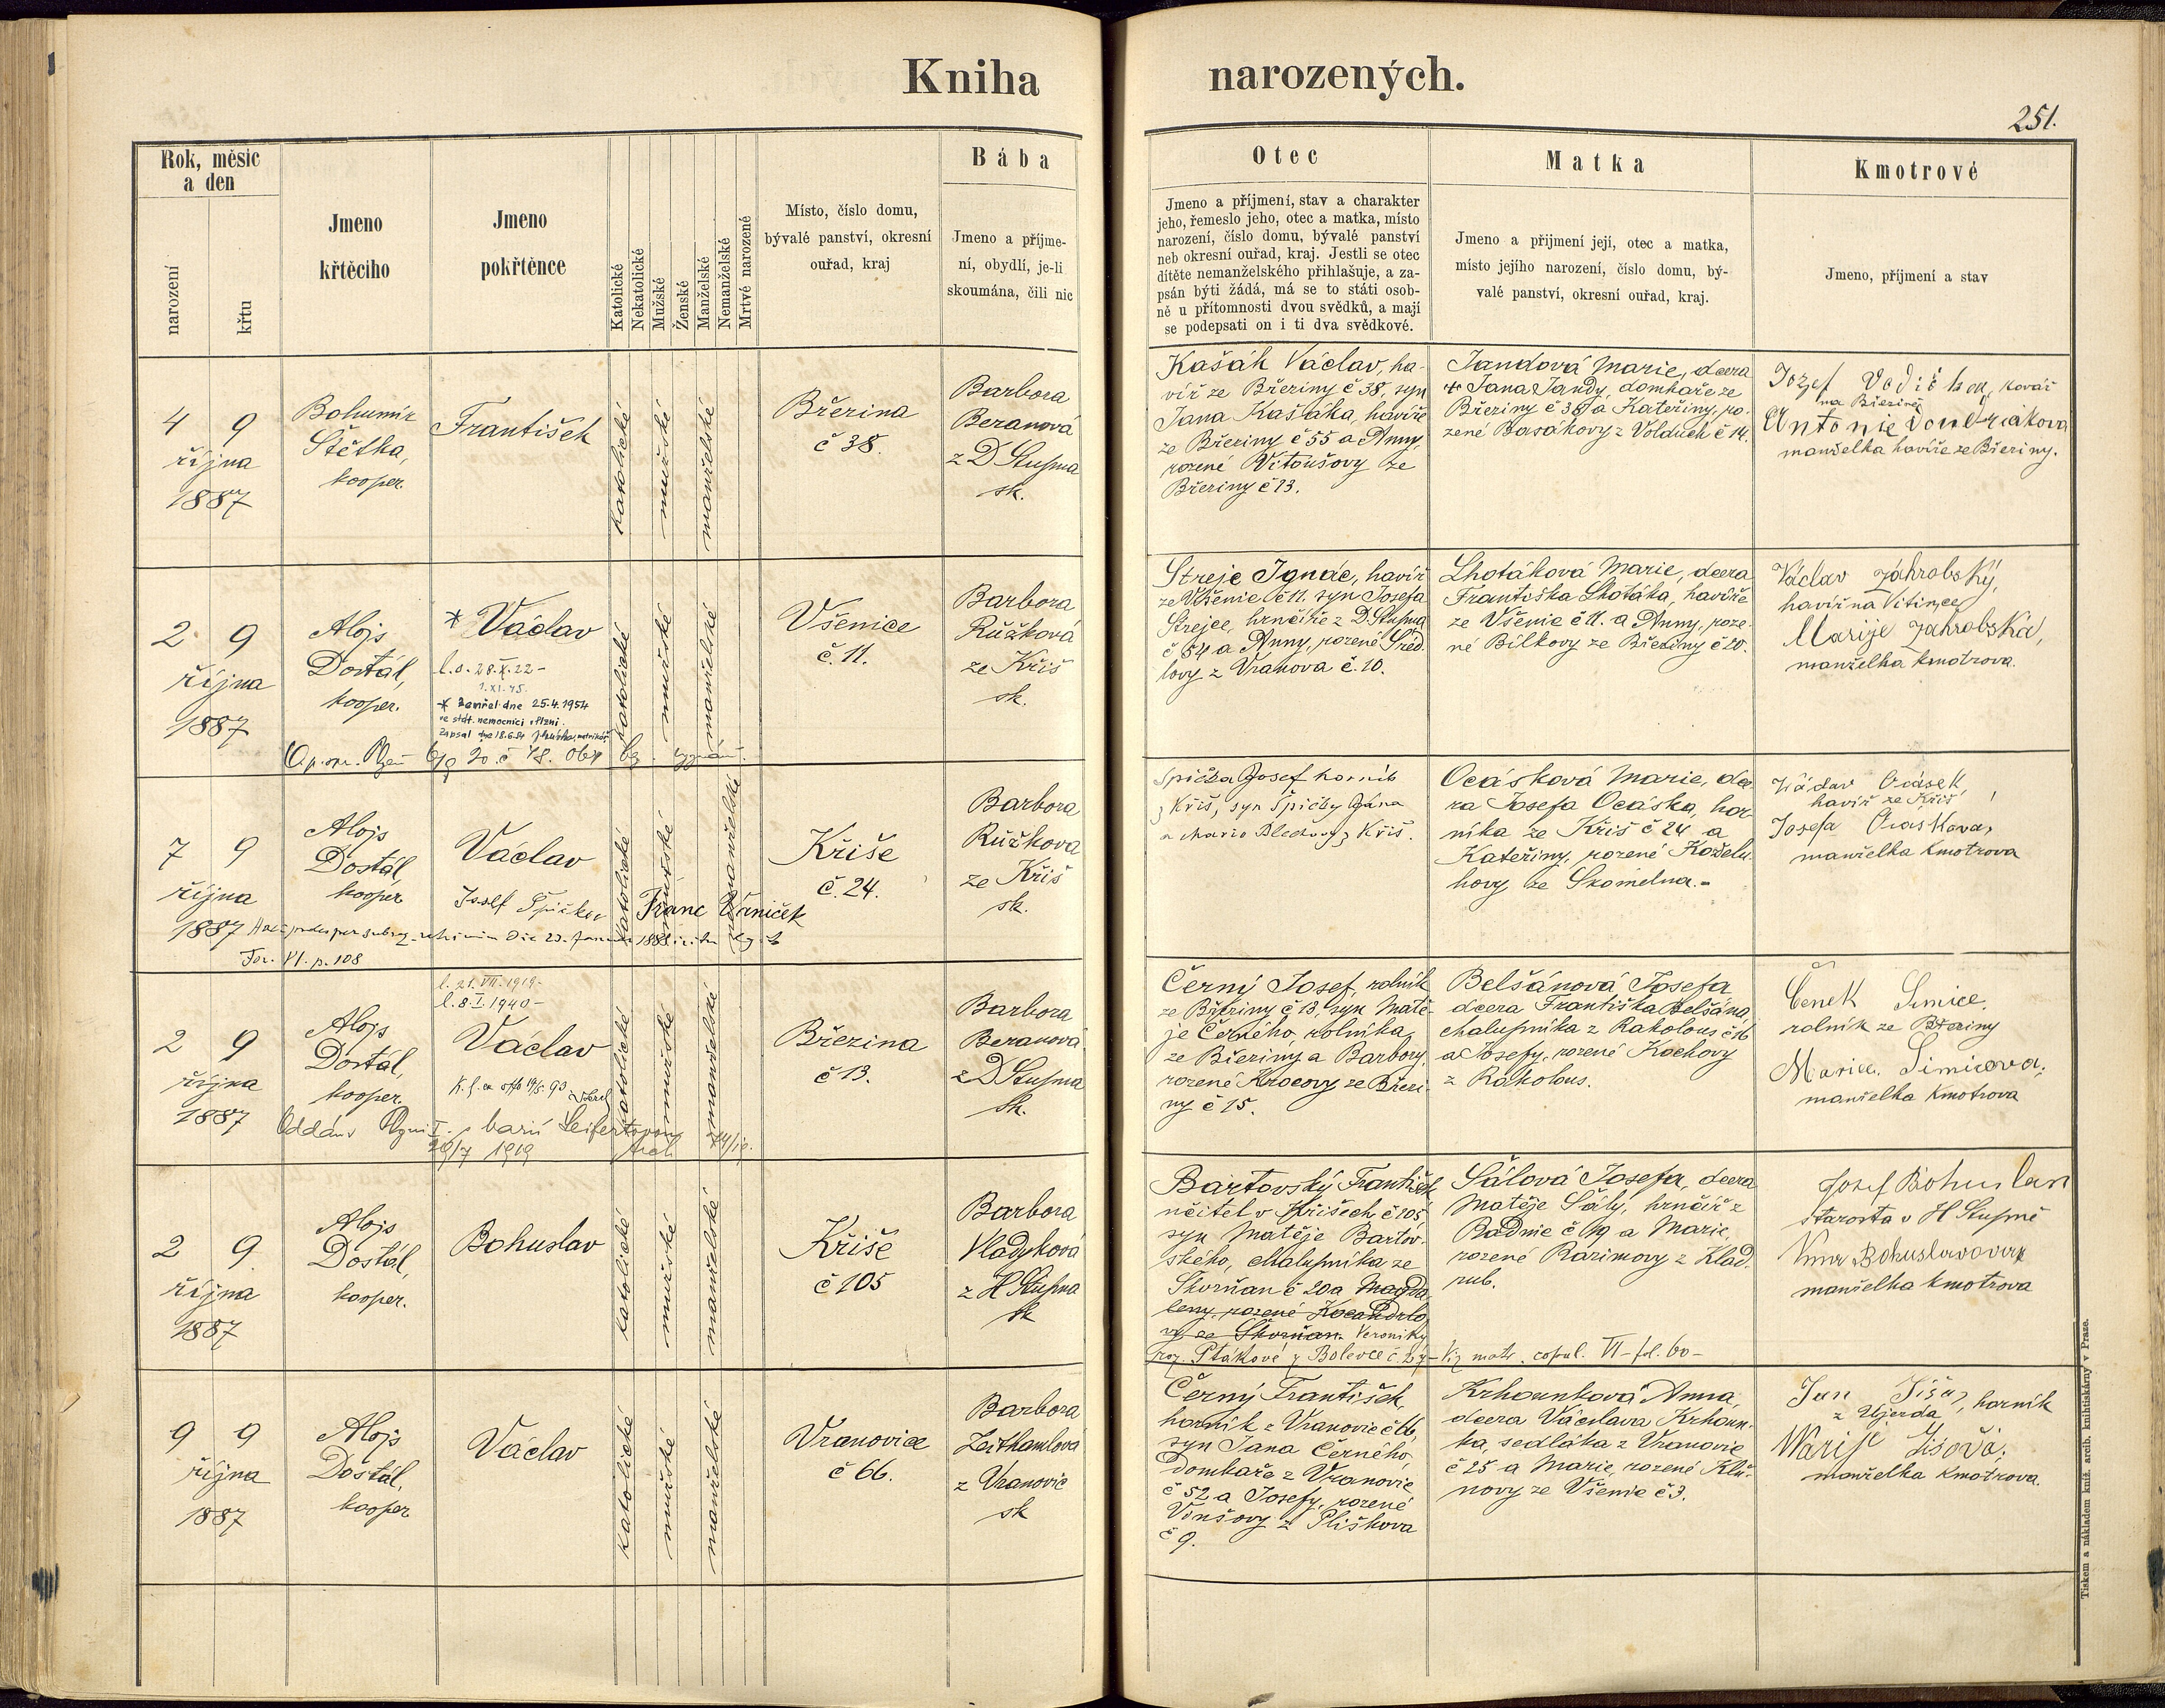 Kniha narozených.
251.
Rok, měsíc
a den
narození
křtu
Jmeno
křtěcího
Jmeno
pokřtěnce
Katolické
Nekatolické
Mužské
Ženské
Manželské
Nemanželské
Mrtvé narozené
Místo, číslo domu,
bývalé panství, okresní
ouřad, kraj
Bába
Jmeno a příjme-
ní, obydlí, je-li
skoumána, čili nic
Otec
Jmeno a příjmení, stav a charakter
jeho, řemeslo jeho, otec a matka, místo
narození, číslo domu, bývalé panství
neb okresní ouřad, kraj. Jestli se otec
dítěte nemanželského přihlašuje, a za-
psán býti žádá, má se to státi osob-
ně u přítomnosti dvou svědků, a mají
se podepsati on i ti dva svědkové.
Matka
Jmeno a přijmení její, otec a matka,
místo jejího narození, číslo domu, bý-
valé panství, okresní ouřad, kraj.
Kmotrové
Jmeno, příjmení a stav
4 9
října
1887
Bohumír
Štětka,
kooper.
František
katolické
mužské
manželské
Březina
č 38.
Barbora
Beranová
z D Stupna
sk.
Kašák Václav, ha-
víř ze Březiny č 38, syn
Jana Kašáka, havíře
ze Březiny č 55 a Anny,
rozené Vitoušovy ze
Březiny č 13.
Jandová Marie, dcera
+ Jana Jandy, domkaře ze
Březiny č 38 a Kateřiny, ro-
zené Basákovy z Volduch č 14.
Jozef Vodička, kovář
na Březině
Antonie
manželka havíře ze Březiny.
2 9
října
1887
Alojs
Dostál,
kooper.
* Václav
l.o. 28.X.22-
1.XI.45.
* Zemřel dne 25.4.1954
ve stát. nemocnici v Plzni.
Zapsal dne 18.6.54
katolické
mužské
manželské
Všenice
č. 11.
Barbora
Růžková
ze Kříš
sk.
Strejc Ignác, havíř
ze Všenic č 11. syn Josefa
Strejce, hrnčíře z D. Stupna
č 54 a Anny, rozené Šred-
lovy z Vranova č. 10.
Lhotáková Marie, dcera
Františka Lhotáka, havíře
ze Všenic č 11. a Anny, roze-
né Bílkovy ze Březiny č 20.
Václav Zahrobský,
havíř na Vitince
Marije Zahrobská,
manželka kmotrova.
7 9
října
1887
Alojs
Dostál,
kooper
Václav
Josef Špička Franc Vaníček
katolické
mužské
Tor. VI. p. 108
Kříše
č. 24.
Barbora
Růžkova
ze Kříš
sk.
Spička Josef horník
z Kříš, syn Špičky Jána
a Marie Blechovy z Kříš.
Ocásková Marie, dce-
ra Josefa Ocáska, hor-
níka ze Kříš č 24 a
Kateřiny, rozené Koželu-
hovy ze Skomelna.-
Václav Ocásek,
havíř ze Kříš,
Josefa Ocaskova,
manželka kmotrova
2 9
října
1887
Alojs
Dostál,
kooper.
l. 21. VII. 1919-
l. 8. I. 1940-
Václav
29/7 1919
katolické
mužské
manželské
Březina
č 13.
Barbora
Beranová
z D Stupna
sk.
Černý Josef, rolník
ze Březiny č 13, syn Matě-
je Černého, rolníka,
ze Březiny a Barbory,
rozené Krocovy ze Březi-
ny č 15.
Belšánová Josefa
dcera Františka Belšána,
chalupníka z Rakolous č 16
a Josefy, rozené Kochovy
z Rakolous.
Čenek Simice,
rolník ze Březiny
Marie Simicova,
manželka kmotrova
2 9
října
1887
Alojs
Dostál,
kooper.
Bohuslav
katolické
mužské
manželské
Kříše
č 105
Barbora
Vladyková
z H Stupna
sk
Bartovský František
učitel v Kříšech č 105,
syn Matěje Bartov-
ského, chalupníka ze
Skorňan č 20 a Magda-
leny, rozené Kocandrlo-
vy ze Skorňan. Veroniky
roz. Ptákové z Bolevce č. 24 - Viz matr. copul. VI - fol. 60 -
Šálová Josefa, dcera
Matěje Šály, hrnčíř z
Radnic č 119 a Marie,
rozené Razimovy z Klad-
rub.
Josef Bohuslav
starosta v H Stupně
Bohuslavova
manželka kmotrova
9 9
října
1887
Alojs
Dostál,
kooper
Václav
katolické
mužské
manželské
Vranovice
č 66.
Barbora
Leithamlová
z Vranovic
sk
Černý František,
horník z Vranovic č 66,
syn Jana Černého,
domkaře z Vranovic
č 52 a Josefy, rozené
Vonšovy z Pliškova
č 9.
Krhounková Anna,
dcera Václava Krhoun-
ka, sedláka z Vranovic
č 25 a Marie, rozené Klů-
novy ze Všenic č 3.
Jan Jiša, horník
z Ujezda
Marije Jišová,
manželka kmotrova.
Tiskem a nákladem kníž. arcib. knihtiskárny v Praze.